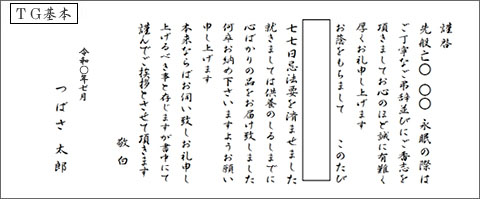 TG基本
謹啓
先般亡〇 〇〇 永眠の際は
ご丁寧なご弔辞並びにご香志を
頂きましてお心のほど誠に有難く
厚くお礼申し上げます
お蔭をもちまして このたび
七七日忌法要を済ませました
就きましては供養のしるしまでに
心ばかりの品をお届け致しました
何卒お納め下さいますようお願い
申し上げます
本来ならばお伺い致しお礼申し
上げるべき事と存じますが書中にて
謹んでご挨拶とさせて頂きます
敬白
令和〇年七月
つばさ 太郎